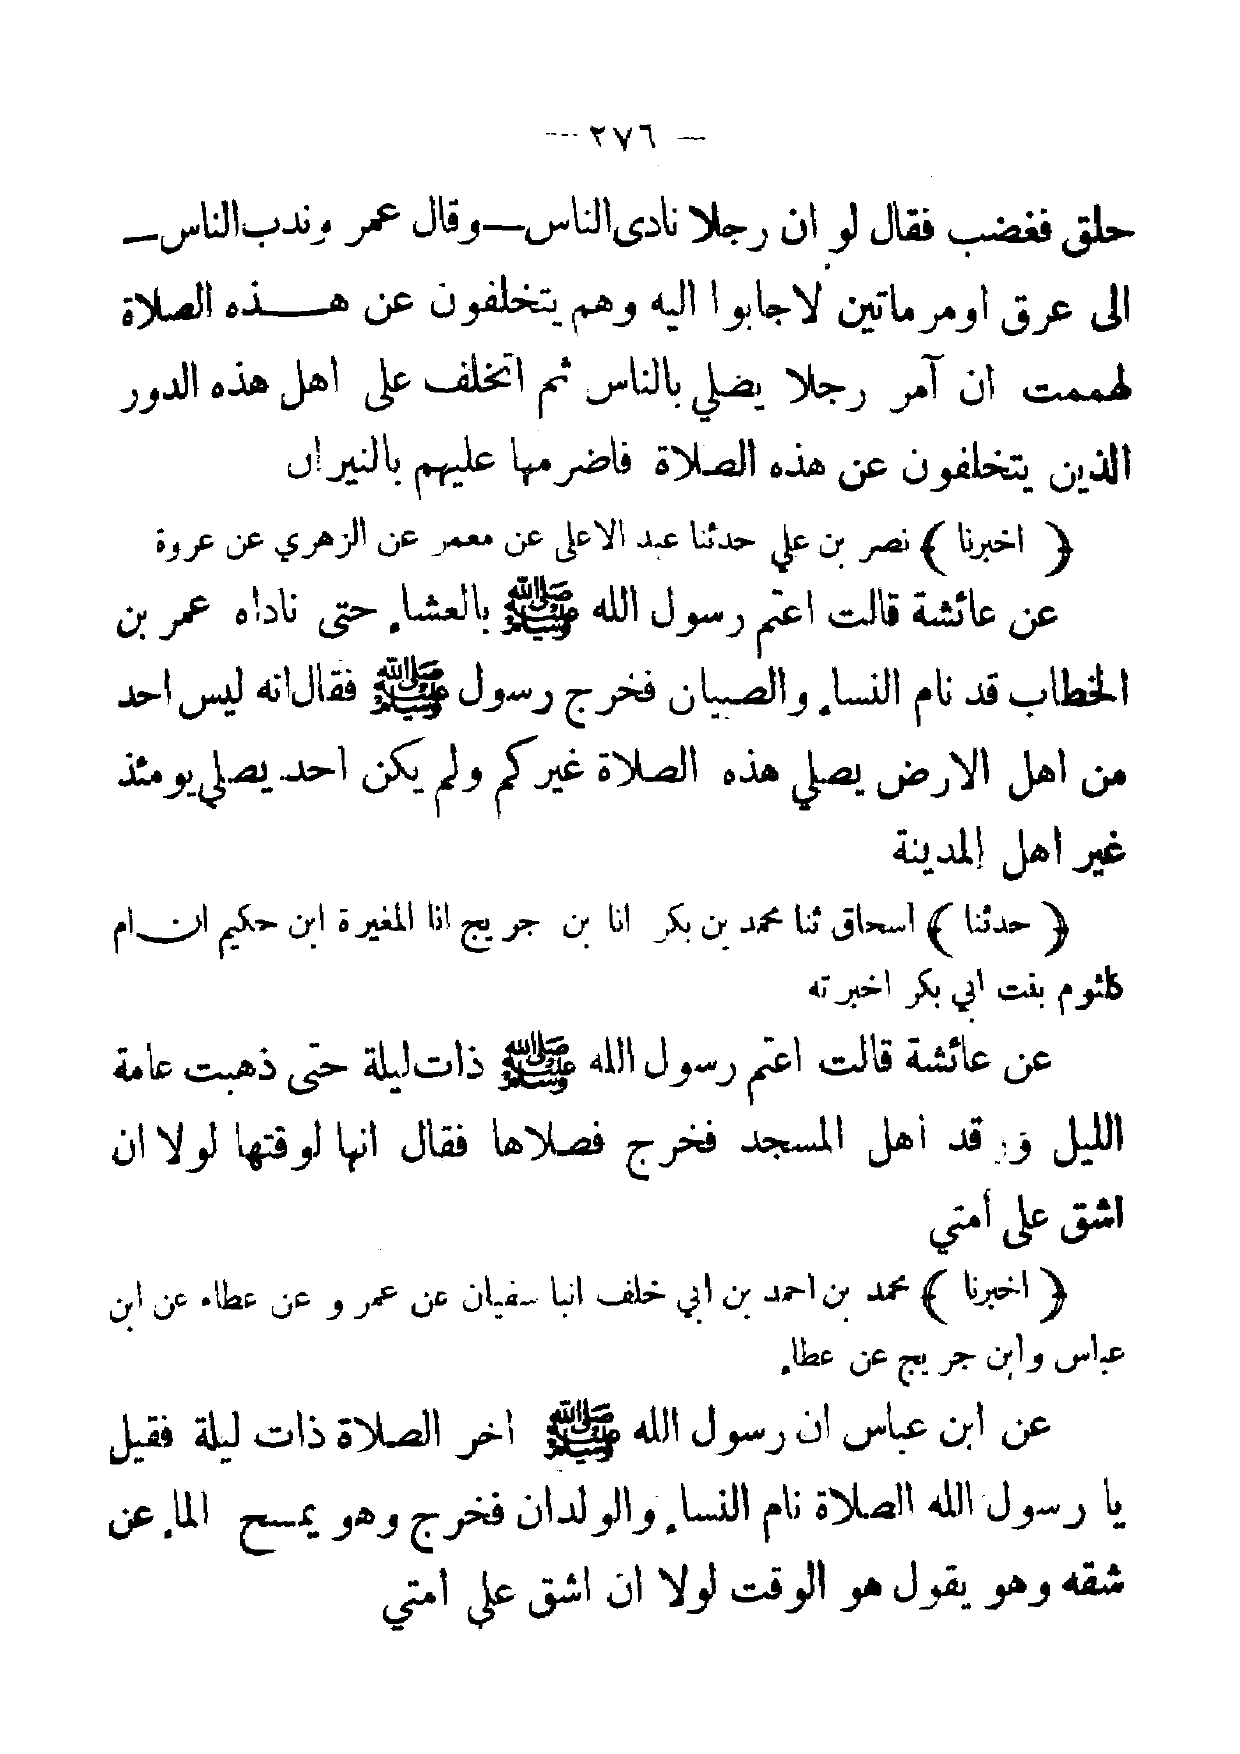 — ٢٧٦ —
حلق فغضب فقال لو ان رجلا نادى الناس—وقال عمر وندب الناس—
الى عرق اومرماتين لاجابوا اليه وهم يتخلفون عن هـــذه الصلاة
لهممت ان آمر رجلا يصلي بالناس ثم اتخلف على اهل هذه الدور
الذين يتخلفون عن هذه الصلاة فاضرمها عليهم بالنيران
﴿ اخبرنا ﴾ نصر بن علي حدثنا عبد الاعلى عن معمر عن الزهري عن عروة
عن عائشة قالت اعتم رسول الله ﷺ بالعشاء حتى ناداه عمر بن
الخطاب قد نام النساء والصبيان فخرج رسول ﷺ فقال انه ليس احد
من اهل الارض يصلي هذه الصلاة غيركم ولم يكن احد يصلي يومئذ
غير اهل المدينة
﴿ حدثنا ﴾ اسحاق ثنا محمد بن بكر انا بن جريج انا المغيرة ابن حكيم ان ام
كلثوم بنت ابي بكر اخبرته
عن عائشة قالت اعتم رسول الله ﷺ ذات ليلة حتى ذهبت عامة
الليل ور قد اهل المسجد فخرج فصلاها فقال انها لوقتها لولا ان
اشق على أمتي
﴿ اخبرنا ﴾ محمد بن احمد بن ابي خلف انبا سفيان عن عمر و عن عطاء عن ابن
عباس وابن جريج عن عطاء
عن ابن عباس ان رسول الله ﷺ اخر الصلاة ذات ليلة فقيل
يا رسول الله الصلاة نام النساء والولدان فخرج وهو يمسح الماء عن
شقه وهو يقول هو الوقت لولا ان اشق على امتي